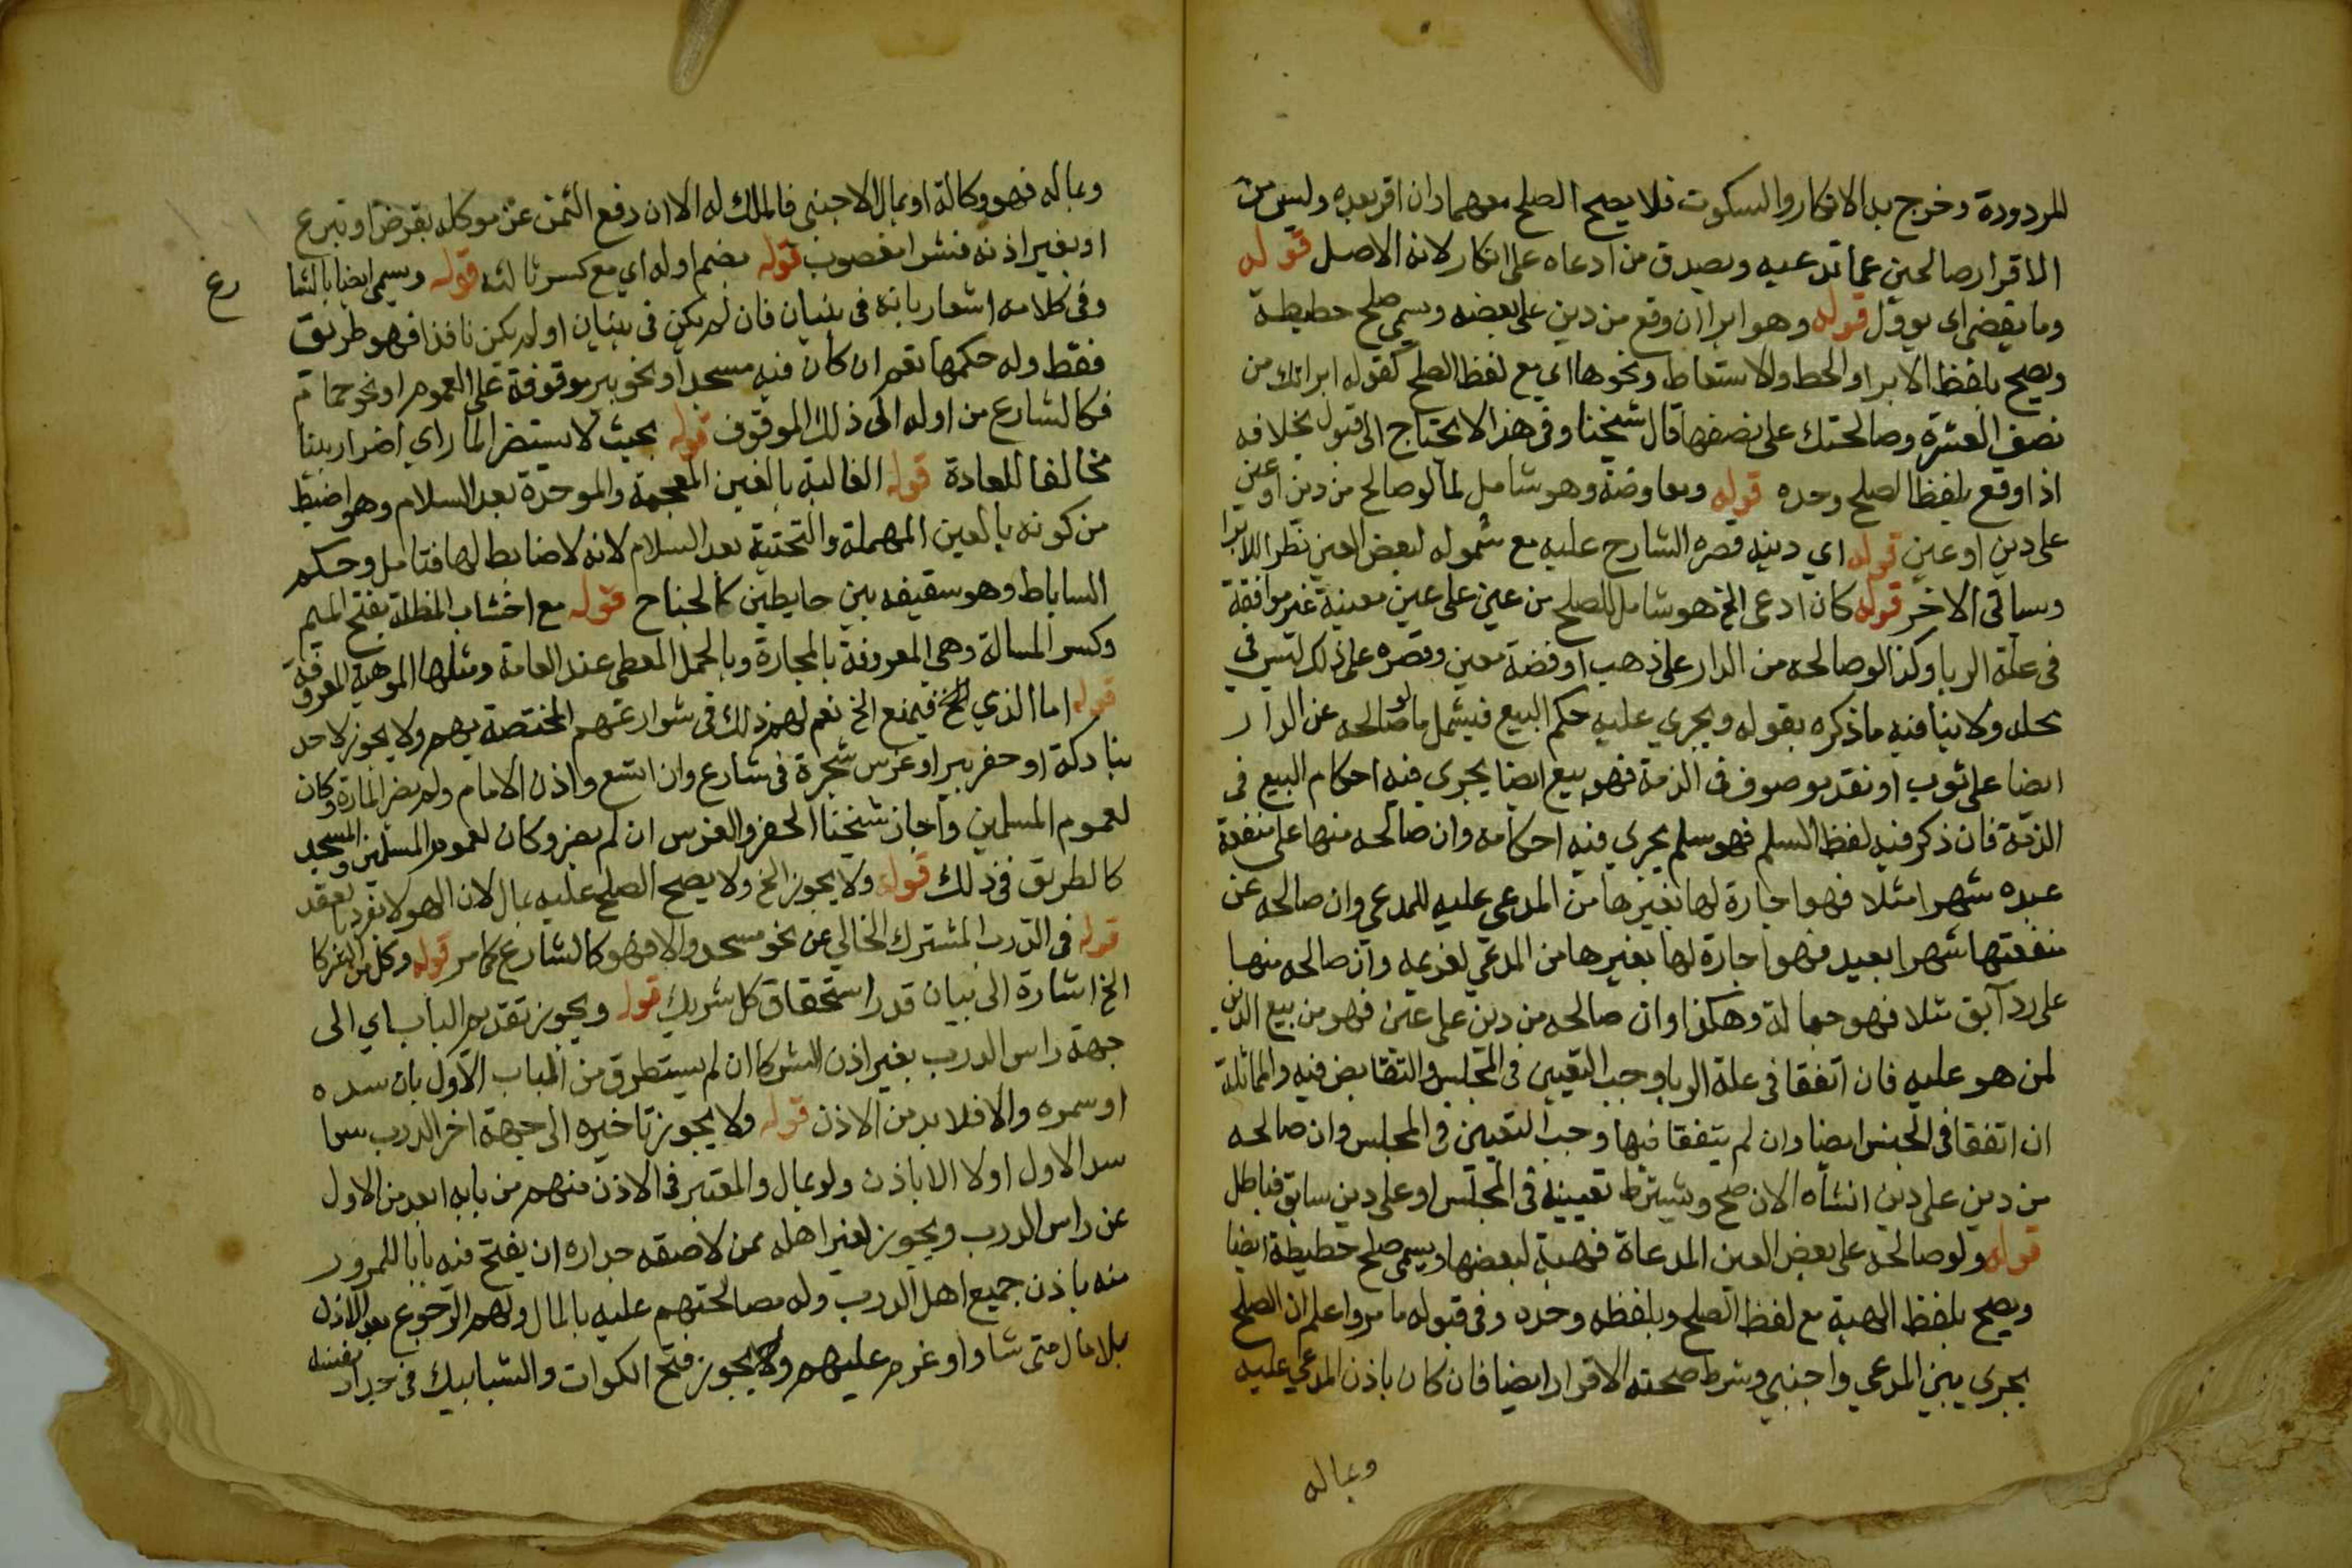 للمردودة وخرج به الانكار والسكوت فلا يصح الصلح معهما وان اقر بعده وليس من
الاقرار صالحني عما تدعيه ويصدق من ادعاه على انكار لانه الاصل قوله
وما يفضي اي يوول قوله وهو ابرا ان وقع من دين على بعضه ويسمى صلح حطيطة
ويصح بلفظ الابرا والحط والاسقاط ونحوها اي مع لفظ الصلح كقوله ابراتك من
نصف العشرة وصالحتك على نصفها قال شيخنا وفى هذا لا يحتاج الى قبول بخلافه
اذا وقع بلفظ الصلح وحده قوله ومعاوضة وهو شامل لما لو صالح من دين او عين
على دين او عين قوله اي دينه قصره الشارح عليه مع شموله لبعض العين نظرا للابرا
وسياتى الاخر قوله كان ادعى الخ هو شامل للصلح من عين على عين معينة غير موافقة
فى علة الربا وكذا لو صالحه من الدار على ذهب او فضة معين وقصره على ذلك ليس في
محله ولا ينافيه ما ذكره بقوله ويجري عليه حكم البيع فيشمل ما لو صالحه عن الدار
ايضا على ثوب او نقد موصوف فى الذمة فهو بيع ايضا يجرى فيه احكام البيع فى
الذمة فان ذكر فيه لفظ السلم فهو سلم يجري فيه احكامه وان صالحه منها على منفعة
عبده شهرا مثلا فهو اجارة لها بغيرها من المدعي عليه للمدعي وان صالحه عن
منفعتها شهرا بعبد فهو اجارة لها بغيرها من المدعي لغريمه وان صالحه منها
على رد آبق مثلا فهو جعالة وهكذا وان صالحه من دين على عين فهو من بيع الدين
لمن هو عليه فان اتفقا فى علة الربا وجب التعيين فى المجلس والتقابض فيه والمماثلة
ان اتفقا فى الجنس ايضا وان لم يتفقا فيها وجب التعيين فى المجلس وان صالحه
من دين على دين انشأه الان صح ويشترط تعيينه فى المجلس او على دين سابق فباطل
قوله ولو صالحه على بعض العين المدعاة فهبة لبعضها ويسمى صلح حطيطة ايضا
ويصح بلفظ الهبة مع لفظ الصلح وبلفظه وحده وفى قبوله ما مر واعلم ان الصلح
يجرى بين المدعي واجنبي وشرط صحته الاقرار ايضا فان كان باذن المدعي عليه
وبماله
وبماله فهو وكالة او بمال الاجنبى فالملك له الا ان دفع الثمن عن موكله بقرض او تبرع
او بغير اذنه فشرا مغصوب قوله بضم اوله اي مع كسر ثالثه قوله ويسمى ايضا بالشا
رع
وفى كلامه اشعار بانه فى بنيان فان لم يكن فى بنيان او لم يكن نافذا فهو طريق
فقط وله حكمها نعم ان كان فيه مسجدا ونحو بير موقوفة على العموم او نحو حمام
فكالشارع من اوله الى ذلك الموقوف قوله بحيث لا يستضر المار اي اضرار بينا
مخالفا للعادة قوله الغالبة بالغين المعجمة والموحدة بعد السلام وهو اضبط
من كونه بالعين المهملة والتحتية بعد السلام لانه لا ضابط لها فتامل وحكم
الساباط وهو سقيفه بين حايطين كالجناح قوله مع اخشاب المظلة بفتح الميم
وكسر المسالة وهي المعروفة بالمجارة وبالحمل المعطى عند العامة ومثلها الموهية المعروفة
قوله اما الذي الخ فيمنع الخ نعم لهم ذلك فى شوارعهم المختصة بهم ولا يجوز لاحد
بنا دكة او حفر بير او غرس شجرة فى شارع وان اتسع واذن الامام ولم يضر المارة وكان
لعموم المسلمين واجاز شيخنا الحفر والغرس ان لم يضر وكان لعموم المسلمين والمسجد
كالطريق فى ذلك قوله ولا يجوز الخ ولا يصح الصلح عليه بمال لان الهوا لا يفرد بعقد
قوله فى الدرب المشترك الخالي عن نحو مسجد والا فهو كالشارع كما مر قوله وكل من الشركا
الخ اشارة الى بيان قدر استحقاق كل شريك قوله ويجوز تقديم الباب اي الى
جهة راس الدرب بغير اذن الشركا ان لم يستطرق من الباب الاول بان سده
او سمره والا فلا بد من الاذن قوله ولا يجوز تاخيره الى جهة اخر الدرب سوا
سد الاول اولا الا باذن ولو بمال والمعتبر فى الاذن منهم من بابه ابعد من الاول
عن راس الدرب ويجوز لغير اهله ممن لاصقه جداره ان يفتح فيه بابا للمرور
منه باذن جميع اهل الدرب وله مصالحتهم عليه بالمال ولهم الرجوع بعد الاذن
بلا مال متى شاوا او غرم عليهم ولا يجوز فتح الكوات والشبابيك فى جدار نفسه